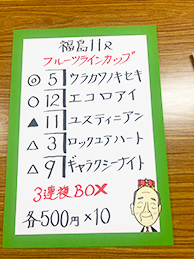 福島11R
フルーツラインカップ
◎ 5 ウラカワノキセキ
○ 12 エコロアイ
▲ 11 ユスティニアン
△ 3 ロックユアハート
△ 9 ギャラクシーナイト
3連複BOX
各500円×10